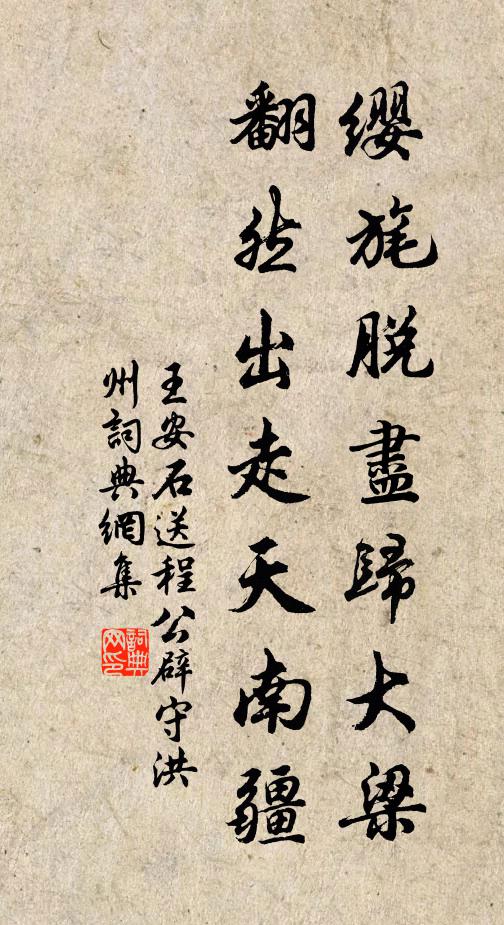 缨旄脱盡歸大梁
翻然出走天南疆
王安石送程公辟守洪
州詞典網集
詞典网印